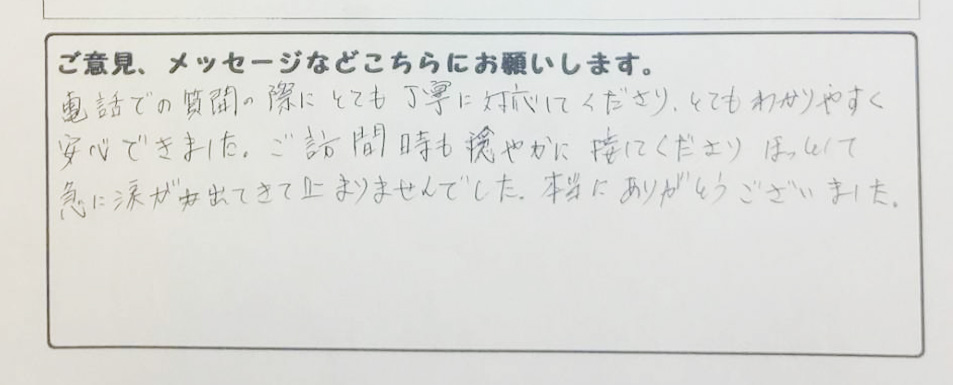 ご意見、メッセージなどこちらにお願いします。
電話での質問の際にとても丁寧に対応してくださり、とてもわかりやすく
安心できました。ご訪問時も穏やかに接してくださりほっとして
急に涙が出てきて止まりませんでした。本当にありがとうございました。